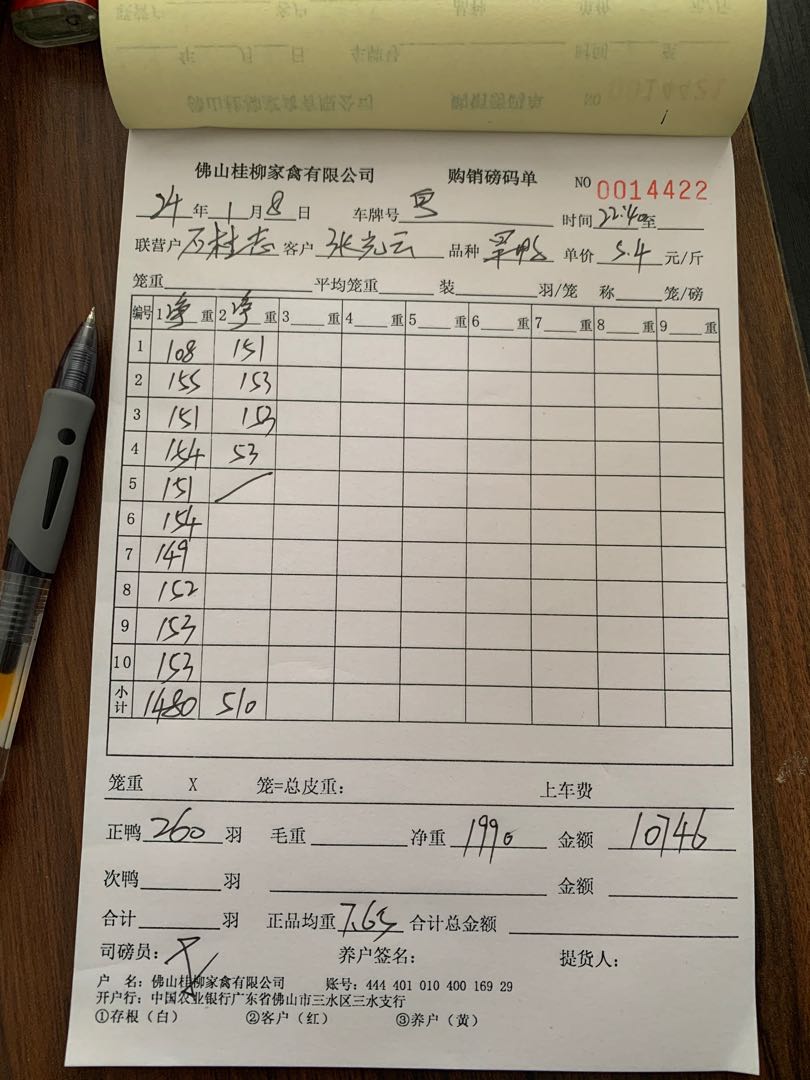 佛山桂柳家禽有限公司 购销磅码单 NO 0014422
24 年 1 月 8 日 车牌号 时间 22:40 至
联营户 客户 张光云 品种 单价 5.4 元/斤
笼重 平均笼重 装 羽/笼 称 笼/磅
编号 1 净 重 2 净 重 3 重 4 重 5 重 6 重 7 重 8 重 9 重
1 108 151
2 155 153
3 151 153
4 154 53
5 151
6 154
7 149
8 152
9 153
10 153
小计 1480 510
笼重 X 笼=总皮重: 上车费
正鸭 260 羽 毛重 净重 1990 金额 10746
次鸭 羽 金额
合计 羽 正品均重 7.65 合计总金额
司磅员: 养户签名: 提货人:
户 名: 佛山桂柳家禽有限公司 账号: 444 401 010 400 169 29
开户行: 中国农业银行广东省佛山市三水区三水支行
①存根(白) ②客户(红) ③养户(黄)